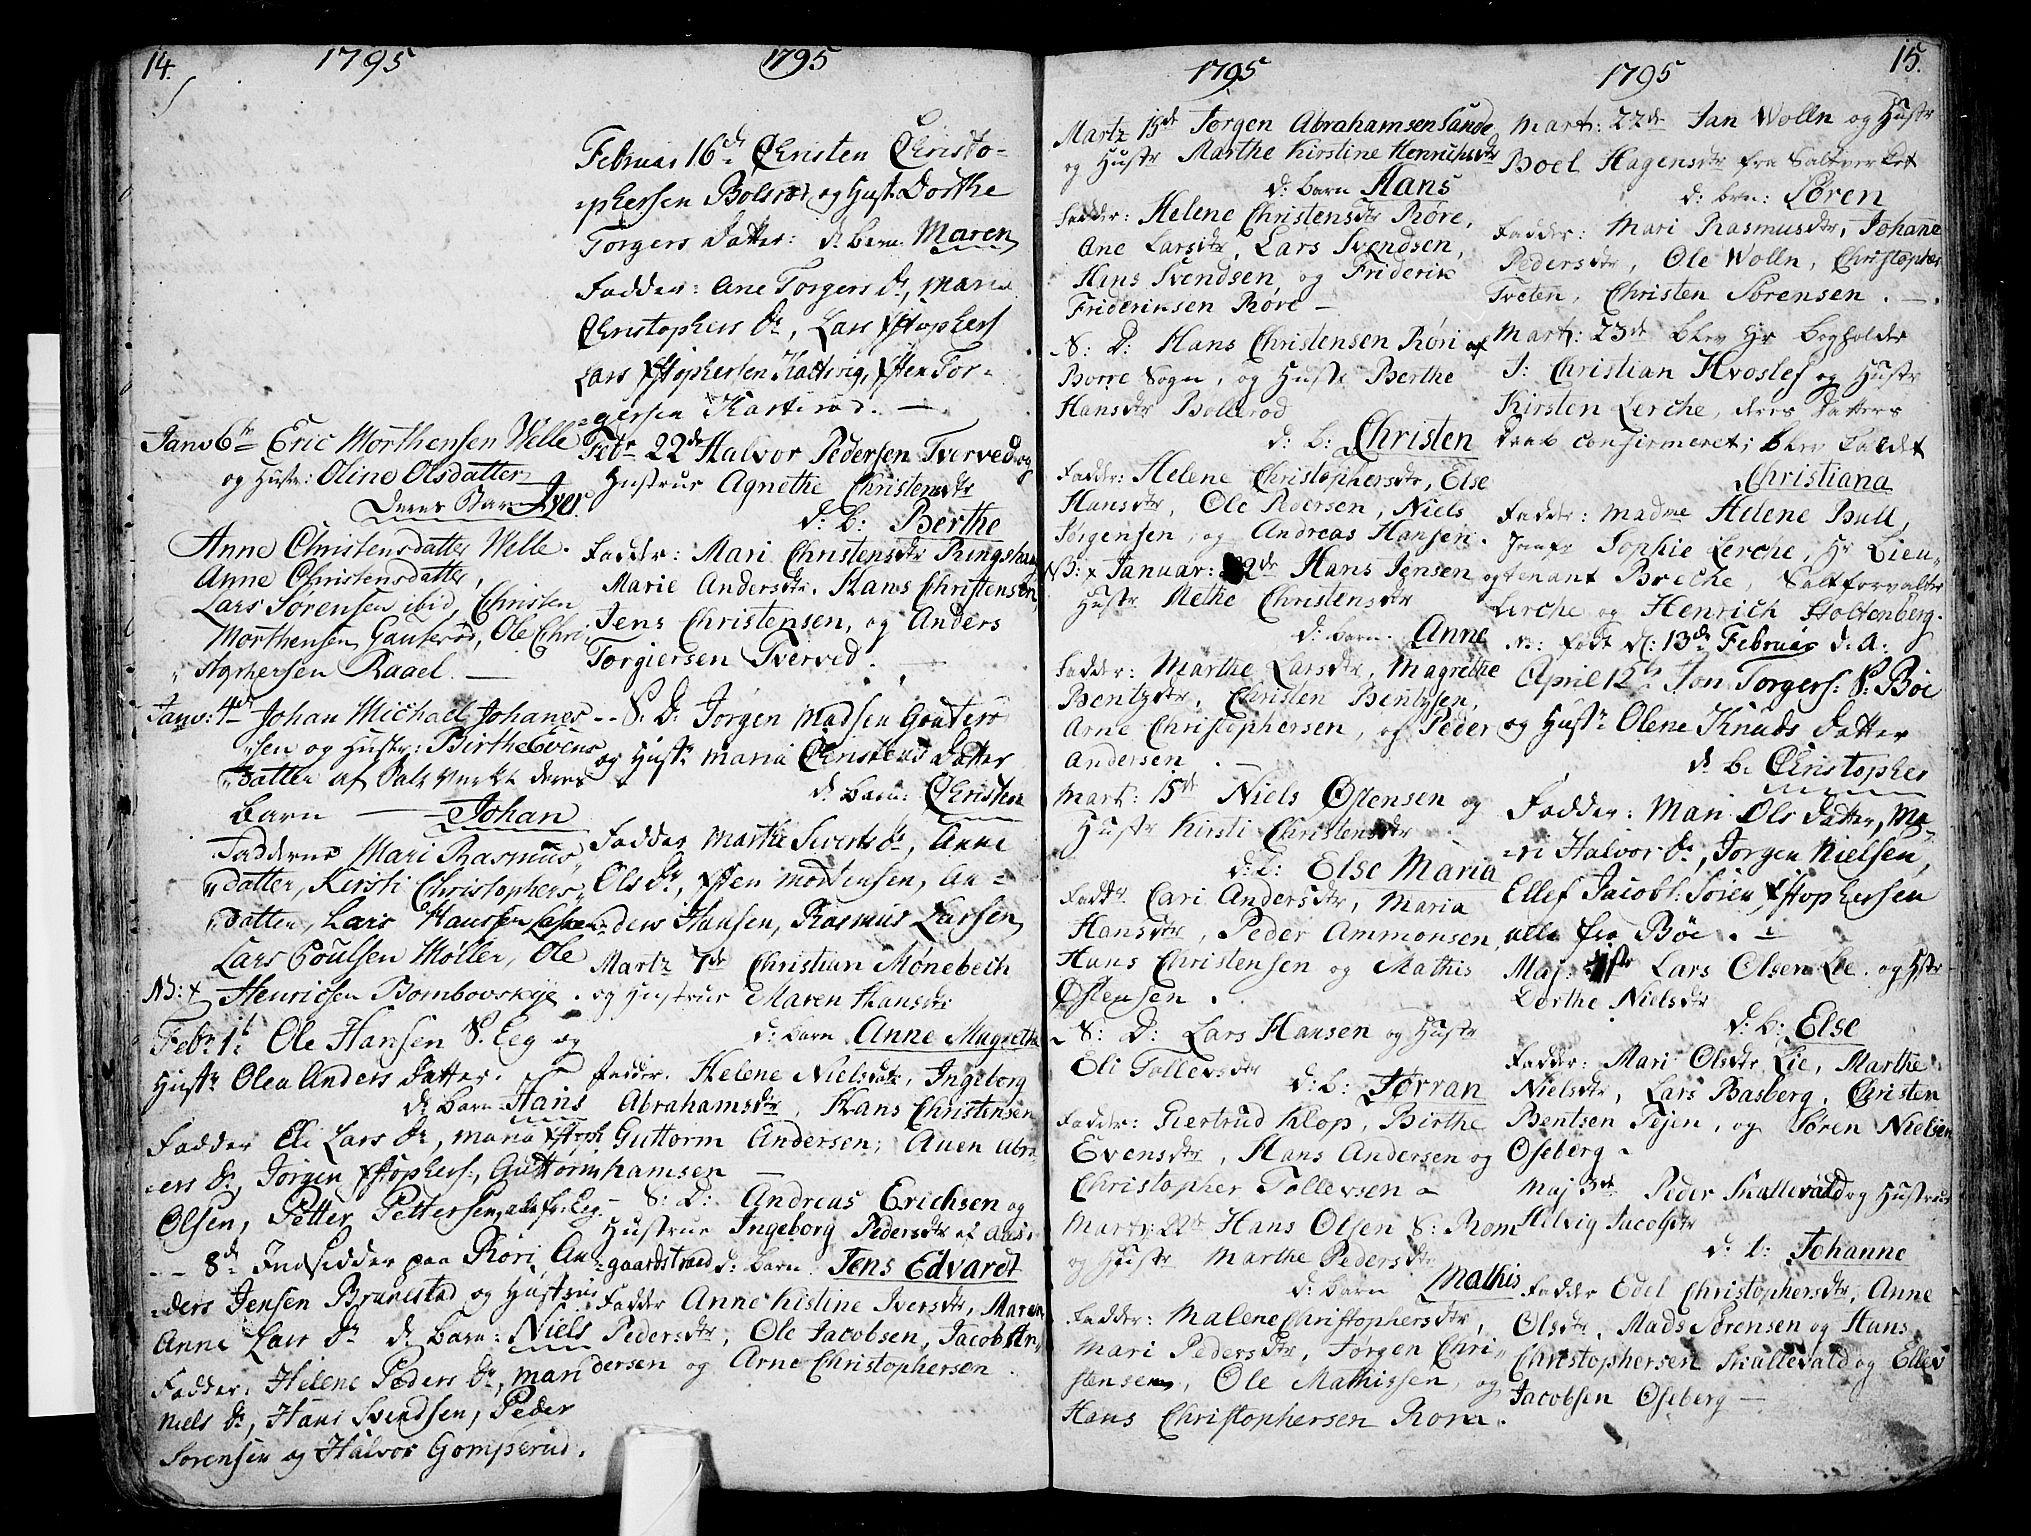 14.
1795
Janv 6te Eric Morthensen Welle
og Hustr: Oline Olsdatter
Deres Barn Iver
Anne Christensdatter Welle.
Anne Christensdatter,
Lars Sørensen ibid, Christen
Morthensen Gauterød, Ole Chri-
stophersen Raael. —
Janv: 4de Johan Michael Johanes
sen og Hustr: Birthe Evens
datter af Salt Verket deres
Barn — Johan
Fadderne Mari Rasmus
datter, Kersti Christophers-
datter, Lars Hanssen
Lars Poulsen Møller, Ole
NB: x Henricsen Bombovskye.
Febr 1te Ole Hansen S. Eeg og
Hustr Olea Anders Datter.
d: Barn Hans
Fadder Eli Lars Dr, Maria Xstoph
ers Dr, Jørgen Xstophers:, Guttorm
Olsen, Petter Pettersen, alle fr. Eeg.
— 8de Indsidder paa Røri, An-
ders Jensen Brunestad og Hustrue
Anne Lars Dr d: Barn: Niels
Fadder: Helene Peders Dr, Mari
Niels Dr, Hans Svendsen, Peder
Sørensen og Halvor Gomperud.
1795
Februar 16de Christen Christo-
phersen Bolsrød, og Hust. Dorthe
Torgers Datter: d: barn Maren
Fadder: Ane Torgers Dr, Maria
Christophers Dr, Lars Xstophers
Lars Xstophersen Kattevig, Xsten Tor-
gersen Karterød. —
Febr 22de Halvor Pedersen Tverved og
Hustrue Agnethe Christensdtr
d: b: Berthe
Fadder: Mari Christensdtr Ringshau
Marie Andersdtr. Hans Christensen,
Jens Christensen, og Anders
Torgiersen Tverved. —
— S. D: Jørgen Madsen Gouterø
og Hustr Maria Christens Datter
d: barn: Christen
Fadder Marthe Siverts Dr, Anne
Ols Dr, Xsten Mortensen, An-
ders Hansen, Rasmus Larsen
Martz 7de Christian Mønebech
og Hustrue Maren Hansdtr
d: barn Anne Magretha
Fadder. Helene Nielsdatr, Ingeborg
Abrahamsdtr, Hans Christensen
Guttorm Andersen, Auen Abra-
hamsen —
— S: D: Andreas Erichsen og
Hustrue Ingeborg Pedersdtr af Aas-
gaardstrand d: barn Jens Edvardt
Fadder Anne Kistine Iversdtr, Maren
Pedersdtr, Ole Jacobsen, Jacob An-
dersen og Arne Christophersen.
1795
Martz 15de Jørgen Abrahamsen Sande
og Hustr Marthe Kirstine Henrichsdtr
d: barn Hans
Fadder: Helene Christensdtr Røre,
Ane Larsdtr, Lars Svendsen,
Hans Svendsen, og Friderik
Friderinsen Røre —
S: D: Hans Christensen Røri af
Borre Sogn, og Hustr Berthe
Hansdtr Bollerød
d: b: Christen
Fadder: Helene Christophersdtr, Else
Hansdtr, Ole Pedersen, Niels
Jørgensen, og Andreas Hansen.
NB: x Januar: 2de Hans Jensen og
Hustr Methe Christensdtr
d: barn. Anne
Fadder: Marthe Larsdtr, Magrethe
Bentzdtr, Christen Bentzsen,
Arne Christophersen, og Peder
Andersen. —
Mart: 15de Niels Østensen og
Hustr Kirsti Christensdtr
d: b: Else Maria
Faddr Cari Andersdtr, Maria
Hansdtr, Peder Ammonsen,
Hans Christensen og Mathis
Østensen.
— S: D: Lars Hansen og Hustr
Eli Tollevsdtr
d: b: Jørran
Fadder: Giertrud Klop, Birthe
Evensdtr, Hans Andersen og
Christopher Tollevsen —
Martz: 22de Hans Olsen S: Rom
og Hustr Marthe Pedersdtr
d: barn Mathis
Fadder: Malene Christophersdtr,
Mari Pedersdtr, Jørgen Chri-
stensen, Ole Mathissen, og
Hans Christophersen Rom.
1795
15.
Mart: 22de Jan Wolln og Hustr
Boel Hagensdtr fra Saltverket
d: brn: Søren
Fadder: Mari Rasmusdtr, Johanne
Pedersdtr, Ole Wolln, Christopher
Tveten, Christen Sørensen. —.
Mart: 23de blev Hr Bogholder
J: Christian Hvoslef og Hustr
Kirsten Lerche, deres Datters
Daab confirmeret; blev kaldet
Christiana
Fadder: Madme Helene Bull,
Jomfr Sophie Lerche, Hr Lieu-
tenant Breche, Saltforvalter
Lerche og Henrich Stoltenberg.
N: født d: 13de Februar d: A:
April 12te Jon Torgers: S: Bøe
og Hustr Olene Knuds Datter
d: b: Christopher
Fadder: Mari Ols Datter, Ma-
ri Halvor Dr, Jørgen Nielsen,
Ellef Jacobs: Søren Xstophersen
alle fra Bøe. —
Maj: 1ste Lars Olsen Lie. og Hstr
Dorthe Nielsdtr
d: b: Else
Fadder: Mari Olsdtr Lie, Marthe
Nielsdtr, Lars Basberg, Christen
Bentsen Tejen, og Søren Nielsen
Oseberg —
Maj 3de Peder Skallevald og Hustrue
Helvig Jacobsdtr
d: b: Johanne
Fadder Edel Christophersdtr, Anne
Olsdtr, Mads Sørensen og Hans
Christophersen Skallevald og Ellev
Jacobsen Oseberg —